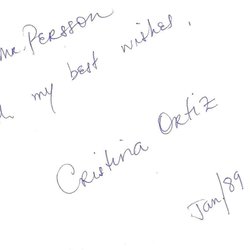 Mr. PERSSON
my best wishes,
CRistina ORtiZ
Jan/89